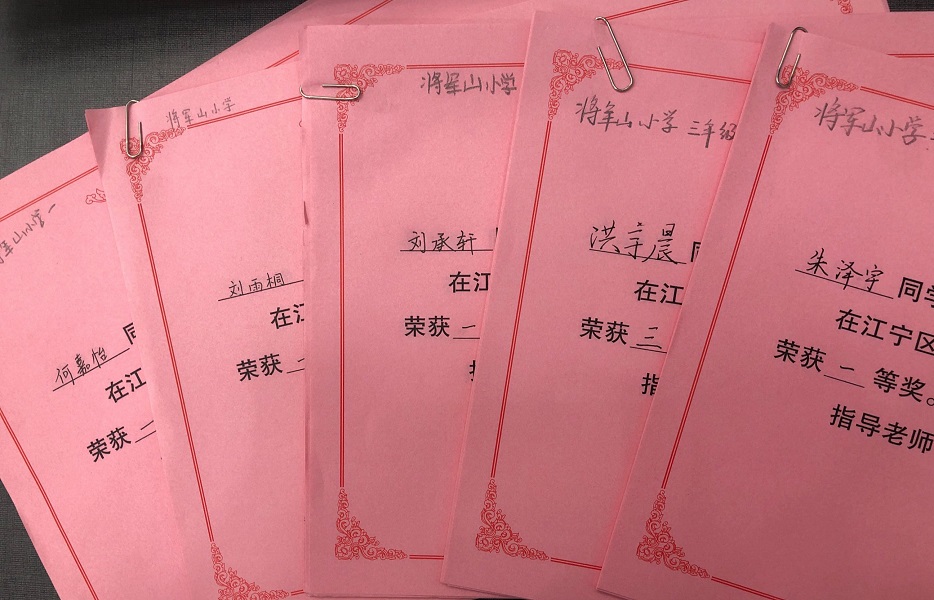 将军山小学一
何嘉怡 同
在江
荣获 二
将军山小学
刘雨桐
在江
荣获 二
将军山小学
刘承轩
在江
荣获 一
指
将军山小学 三年级
洪宇晨 同
在江
荣获 三
指
将军山小学
朱泽宇 同学
在江宁区
荣获 二 等奖。
指导老师